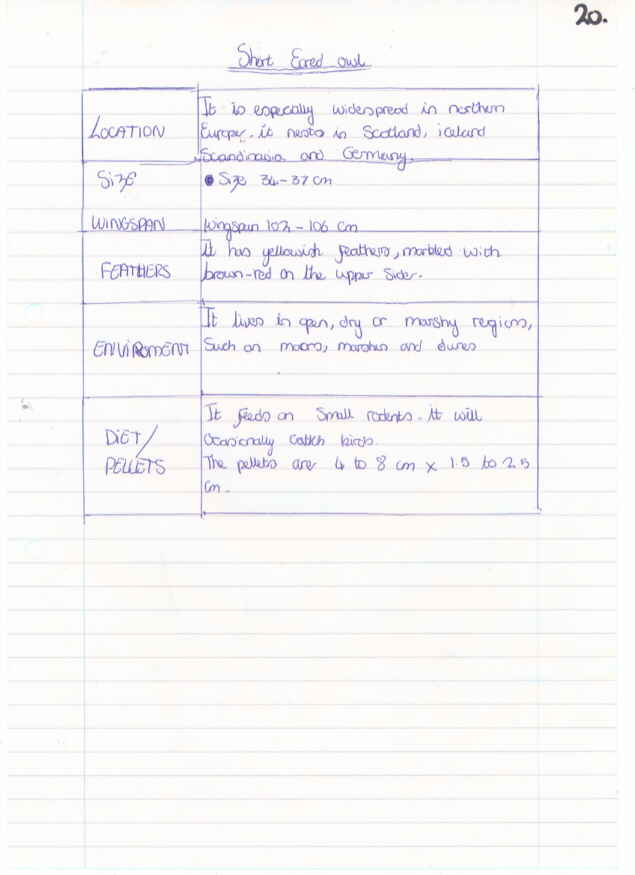 20.
Short Eared owl
LOCATION
It is especially widespread in northern
Europe. it nests in Scotland, iceland
Scandinavia and Germany.
SIZE
• Size 34-37 cm
WINGSPAN
Wingspan 102 - 106 cm
FEATHERS
It has yellowish feathers, marbled with
brown-red on the upper side.
ENVIROMENT
It lives in open, dry or marshy regions,
Such as moors, marshes and dunes
DIET/
PELLETS
It feeds on small rodents. it will
Ocasionally catch birds.
The pellets are 4 to 8 cm x 1.5 to 2.5
cm.